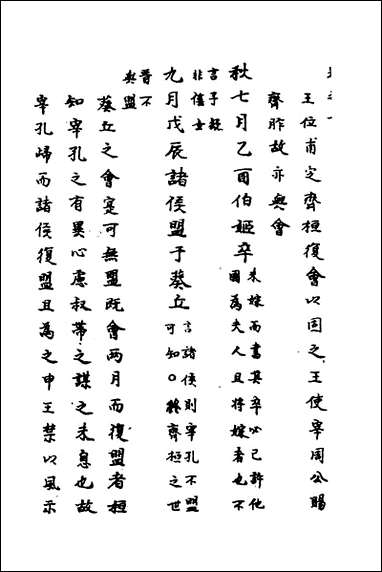 王位甫定齊桓復會以固之王使宰周公賜
齊胙故亦與會
秋七月乙酉伯姬卒
未嫁而書其卒必已許他
國為夫人且將嫁者也不
言子疑
非僖女
九月戊辰諸侯盟于葵丘
言諸侯則宰孔不盟
可知○終齊桓之世
晉不
與盟
葵丘之會寔可無盟既會兩月而復盟者桓
知宰孔之有異心慮叔帶之謀之未息也故
宰孔歸而諸侯復盟且為之申王禁以風示